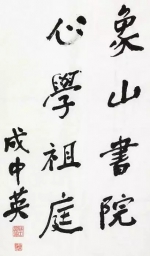 象山書院
心學祖庭
成中英